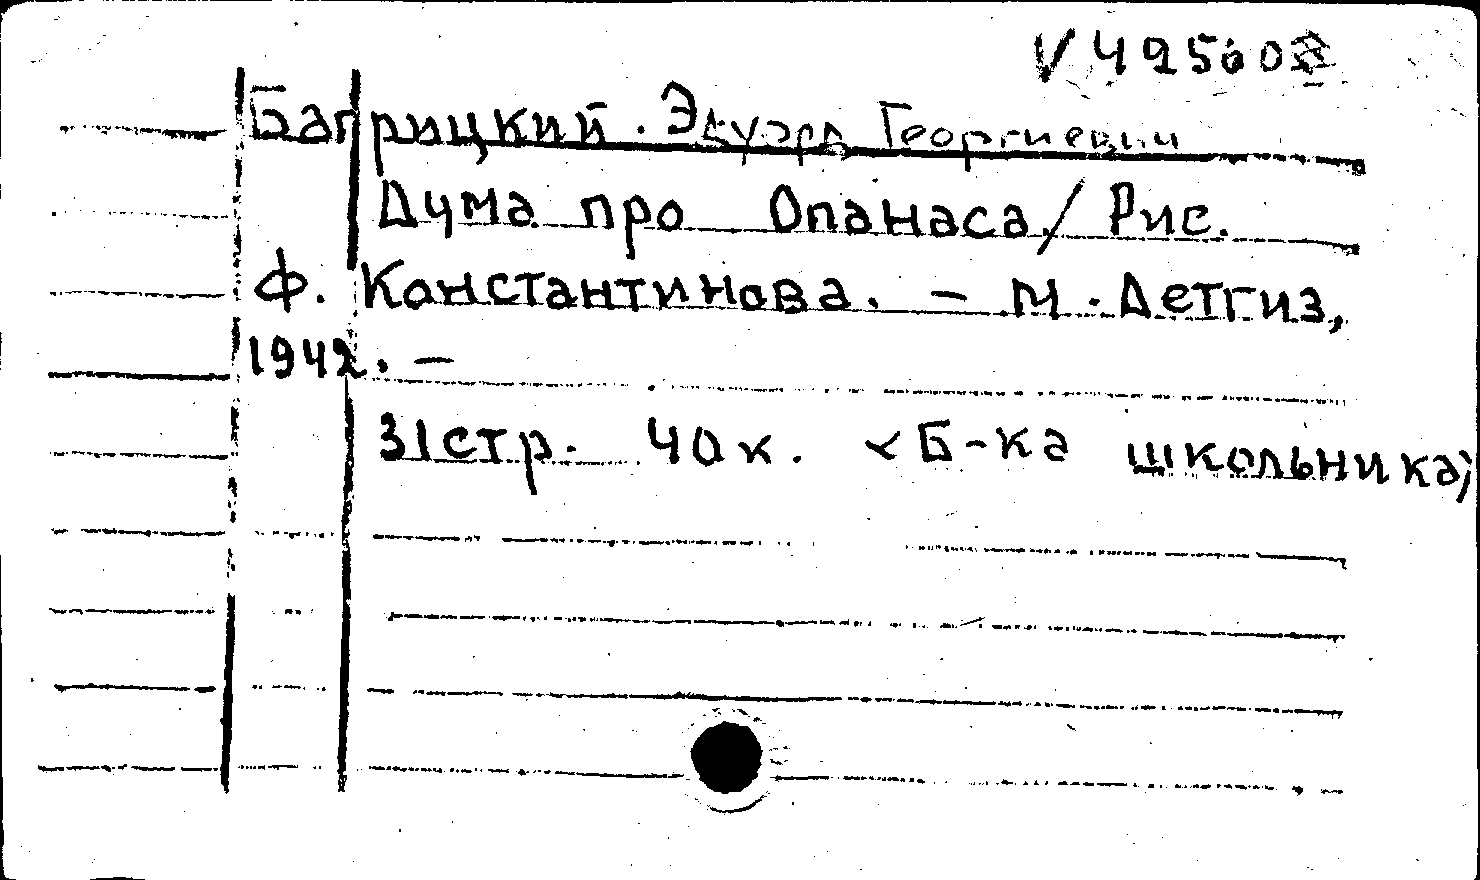 V 42560
Багрицкий. Эдуард Георгиевич
Дума про Опанаса / Рис.
Ф. Константинова. – М. Детгиз,
1942. –
31 стр. 40 к. < Б-ка школьника)